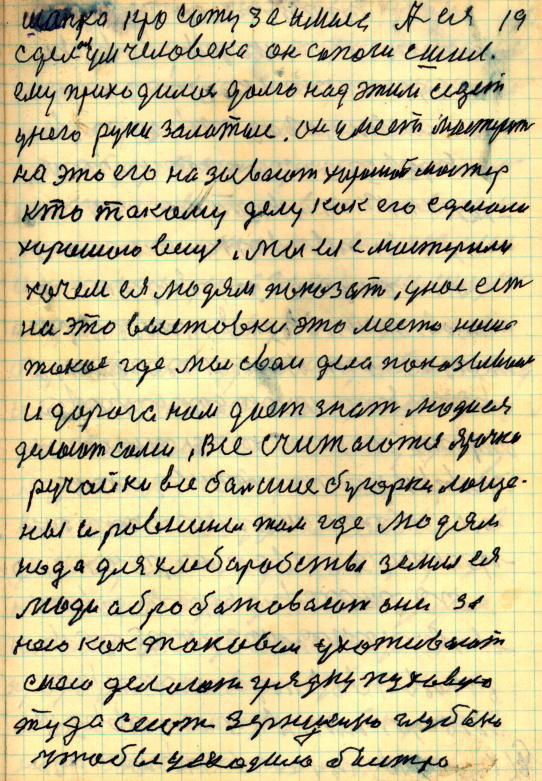 шапка красоту за имела А ея 19
сделал ум человека он сапоги сшил.
ему приходилос долго над этим сидет
унего руки залатые. он умеет мастерит
на это его называют хороший мастер
кто такому делу как его сделали
хорошого вещ, мы ея смастерили
хочем ея людям показат, унас ест
на это выставки это место наше
такое где мы сваи дела показываем
и дорога нам дает знат людмися
делоют сами, все считаются ярочки
ручайки все балшие бугорки лоще-
ны и ровнины там где людям
нада для хлебаробства земля ея
люди абробатовают ани за
нею как таковои ухаживают
с нею делают грядку пуховую
туда сеют зернушко глубако
штобы усходило быстро